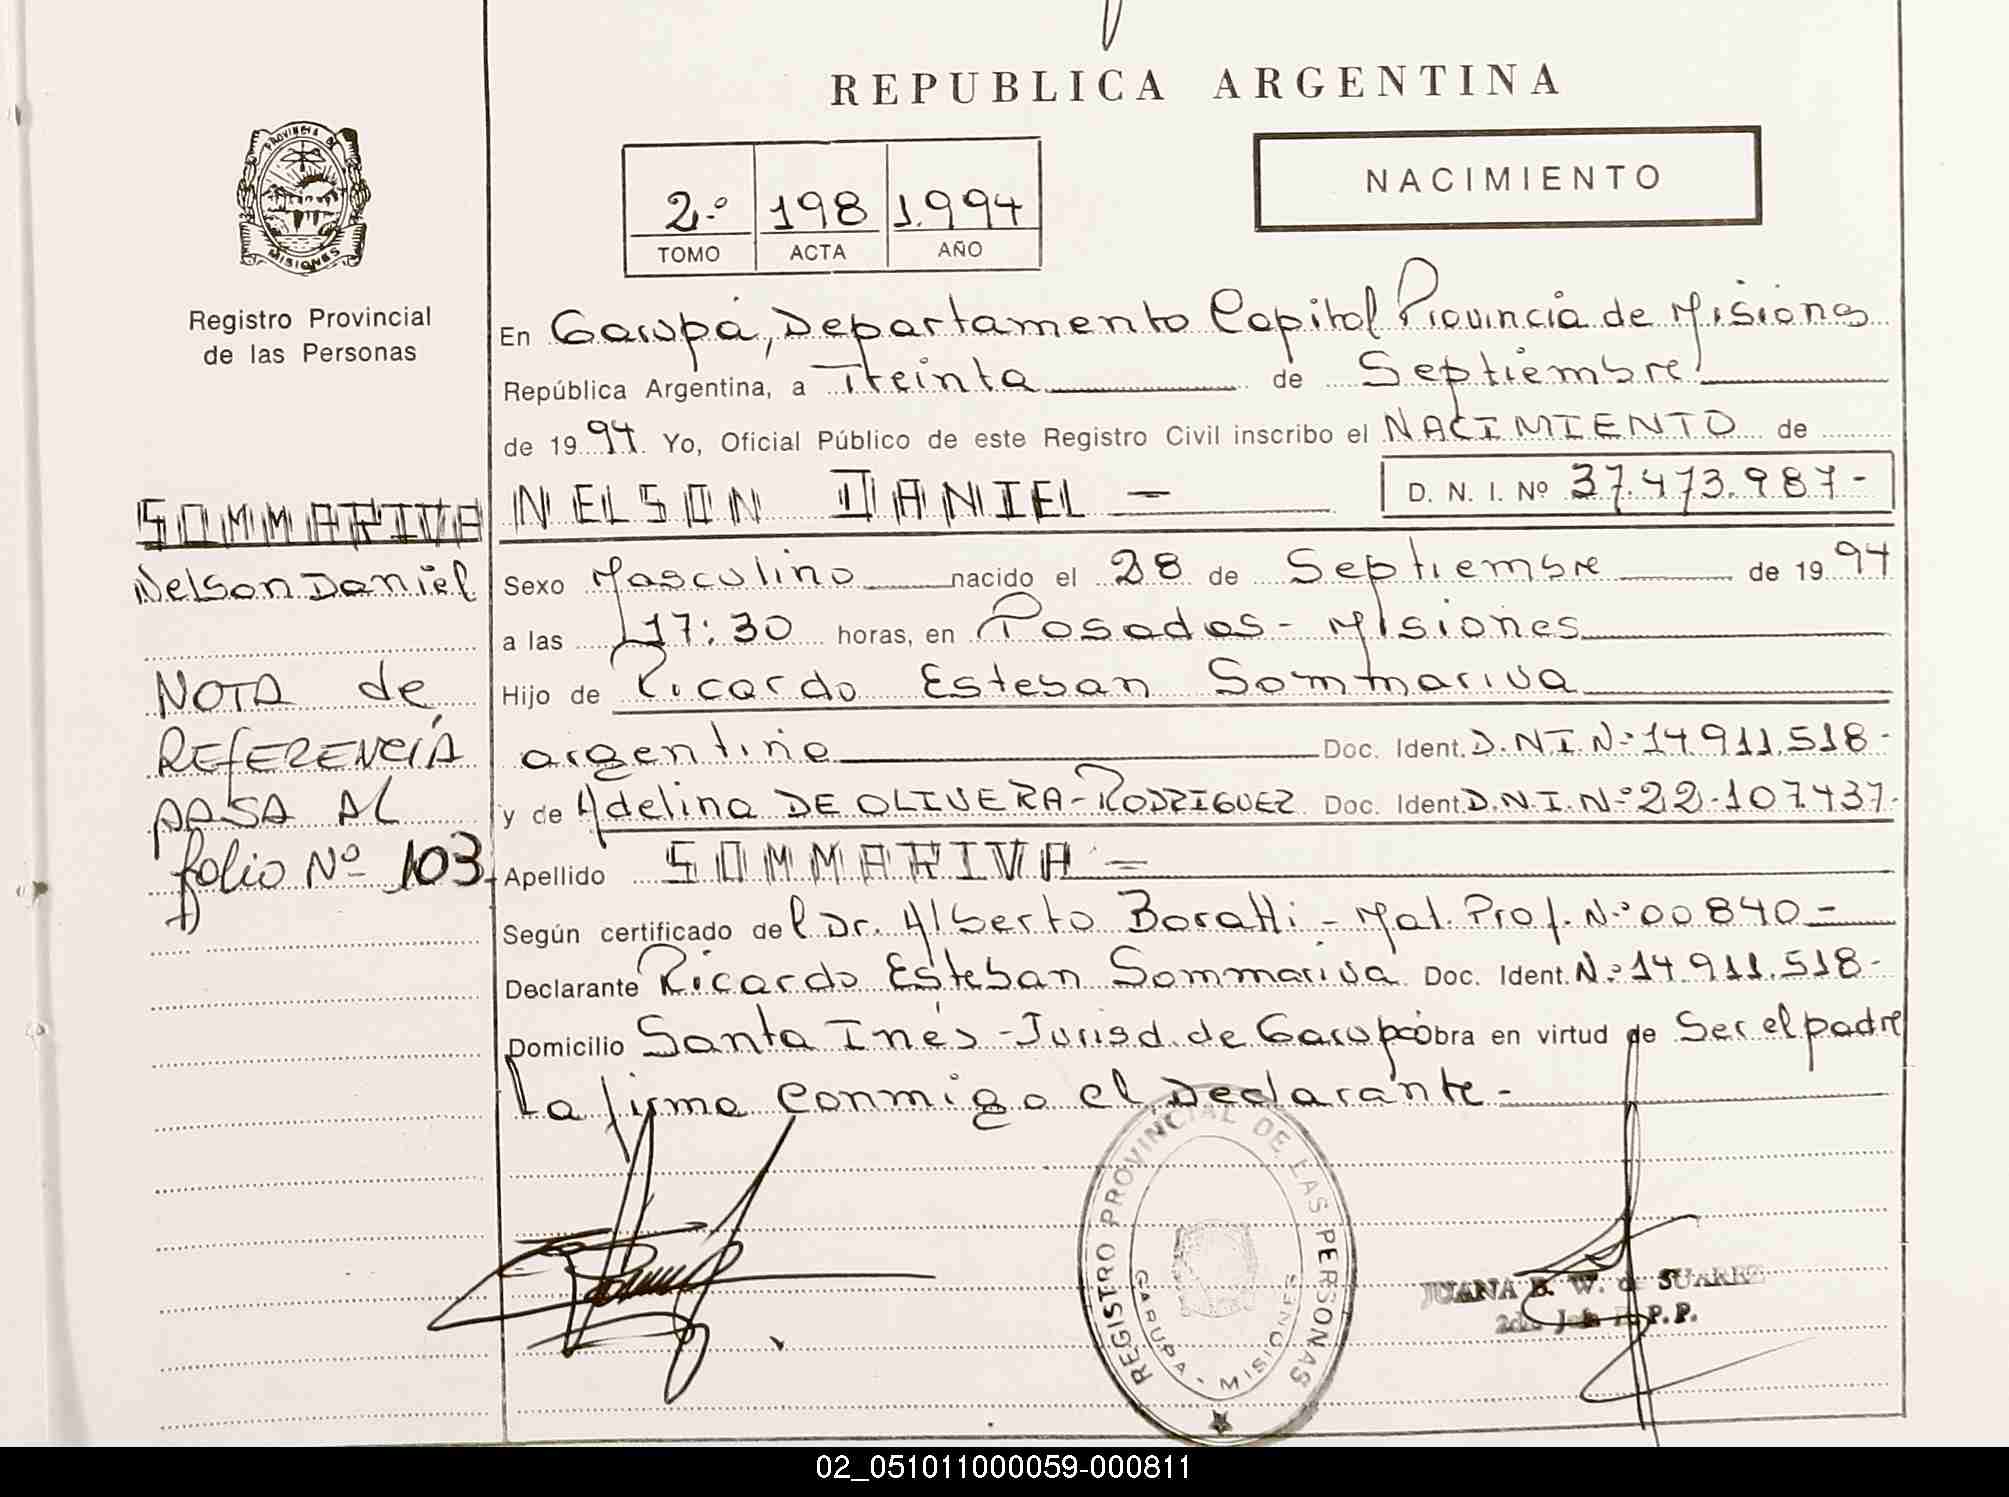 REPUBLICA ARGENTINA
PROVINCIA DE
MISIONES
Registro Provincial
de las Personas
2º 198 1.994
TOMO ACTA AÑO
NACIMIENTO
En Garupá, Departamento Capital Provincia de Misiones
República Argentina, a Treinta de Septiembre
de 1994. Yo, Oficial Público de este Registro Civil inscribo el NACIMIENTO de
NELSON DANIEL - D. N. I. Nº 37.473.987-
SOMMARIVA
Nelson Daniel
Sexo Masculino nacido el 28 de Septiembre de 1994
a las 17:30 horas, en Posadas - Misiones
Hijo de Ricardo Esteban Sommariva
argentino Doc. Ident. D.N.I. Nº 14.911.518-
y de Adelina DE OLIVERA-RODRIGUEZ Doc. Ident. D.N.I. Nº 22.107.437-
Apellido SOMMARIVA =
Según certificado del Dr. Alberto Boratti - Mat. Prof. Nº 00840-
Declarante Ricardo Esteban Sommariva Doc. Ident. Nº 14.911.518-
Domicilio Santa Inés - Jurisd. de Garupá Obra en virtud de Ser el padre
La firma conmigo el Declarante-
NOTA de
REFERENCIA
PASA AL
folio Nº 103
REGISTRO PROVINCIAL DE LAS PERSONAS
GARUPA - MISIONES
JUANA B. W. de SUAREZ
P.P.
02_051011000059-000811